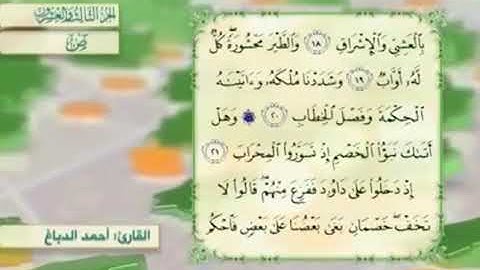 الجزء الثالث والعشرون
ص
بِالْعَشِيِّ وَالْإِشْرَاقِ ١٨ وَالطَّيْرَ مَحْشُورَةً كُلٌّ
لَّهُۥ أَوَّابٌ ١٩ وَشَدَدْنَا مُلْكَهُۥ وَءَاتَيْنَٰهُ
الْحِكْمَةَ وَفَصْلَ الْخِطَابِ ٢٠ وَهَلْ
أَتَىٰكَ نَبَؤُا۟ الْخَصْمِ إِذْ تَسَوَّرُوا۟ الْمِحْرَابَ ٢١
إِذْ دَخَلُوا۟ عَلَىٰ دَاوُۥدَ فَفَزِعَ مِنْهُمْ قَالُوا۟ لَا
تَخَفْ خَصْمَانِ بَغَىٰ بَعْضُنَا عَلَىٰ بَعْضٍ فَاحْكُم
القارئ: أحمد الدباغ